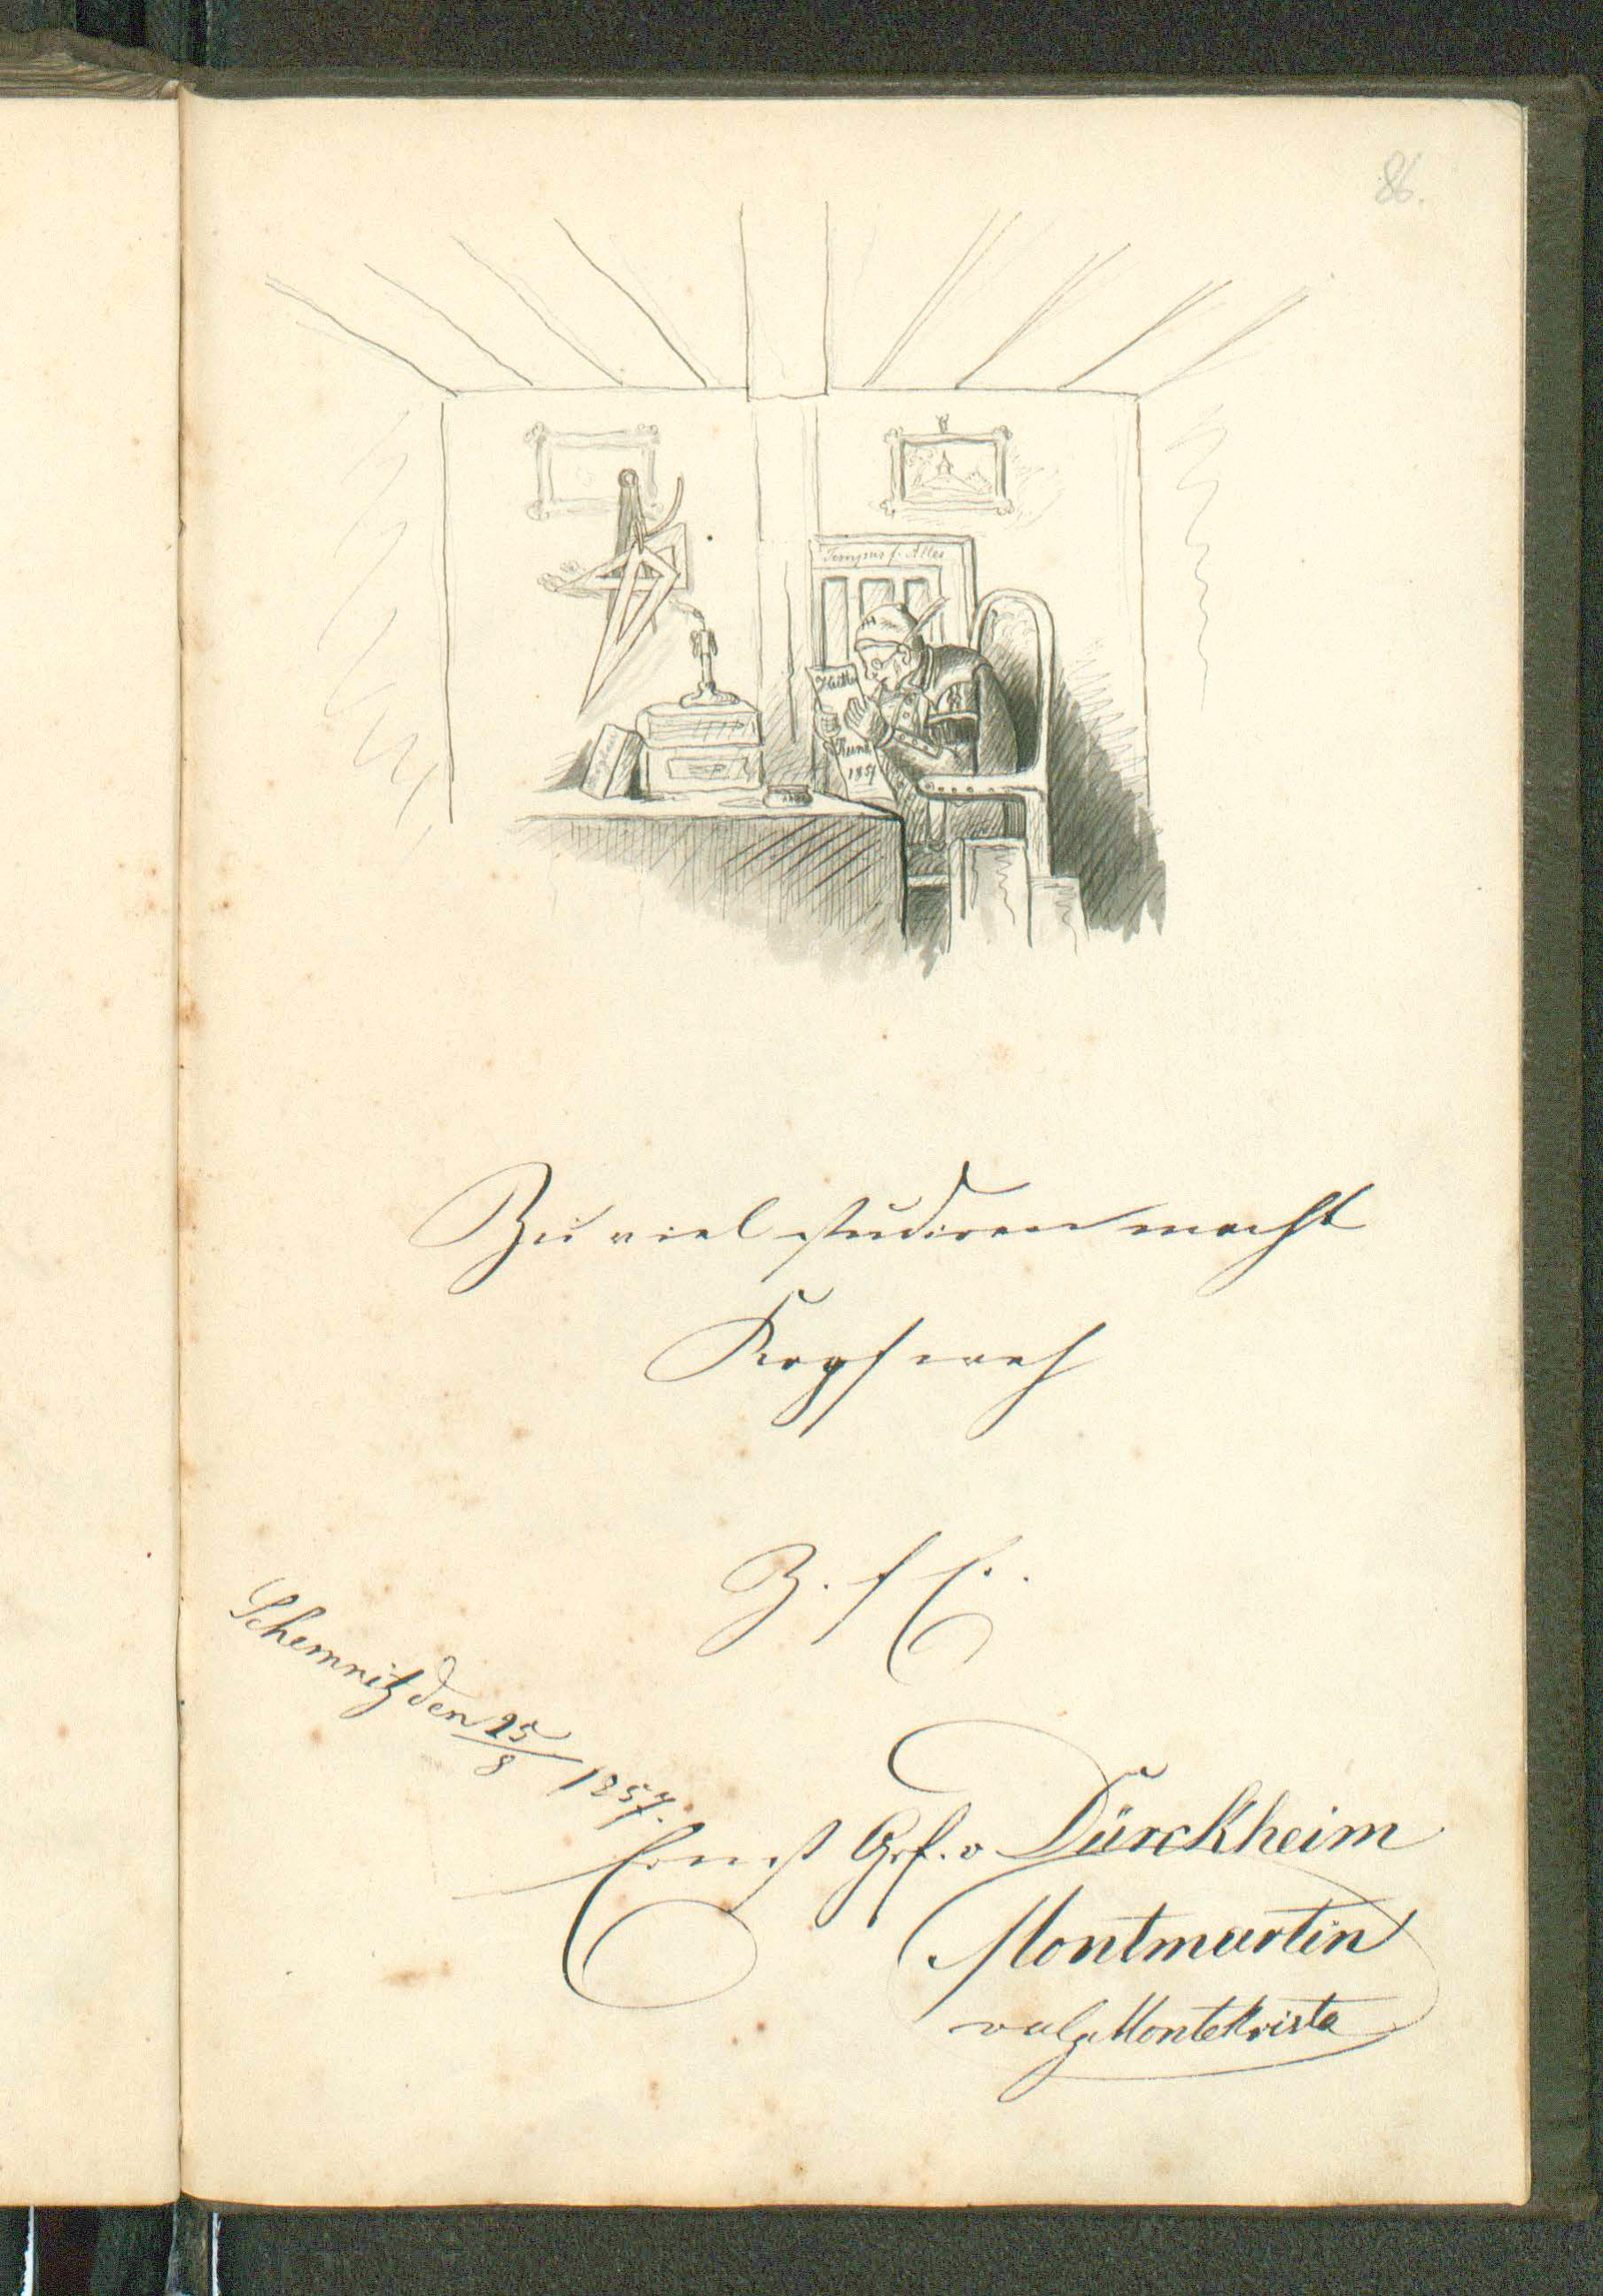 86.
Tempus f. Alles
1857
Zu viel studiren macht
Kopfweh
Z. f E.
Schemnitz den 25/8 1857.
Ernst Grf. v Dürckheim
Montmartin
vulgo MonteKristo